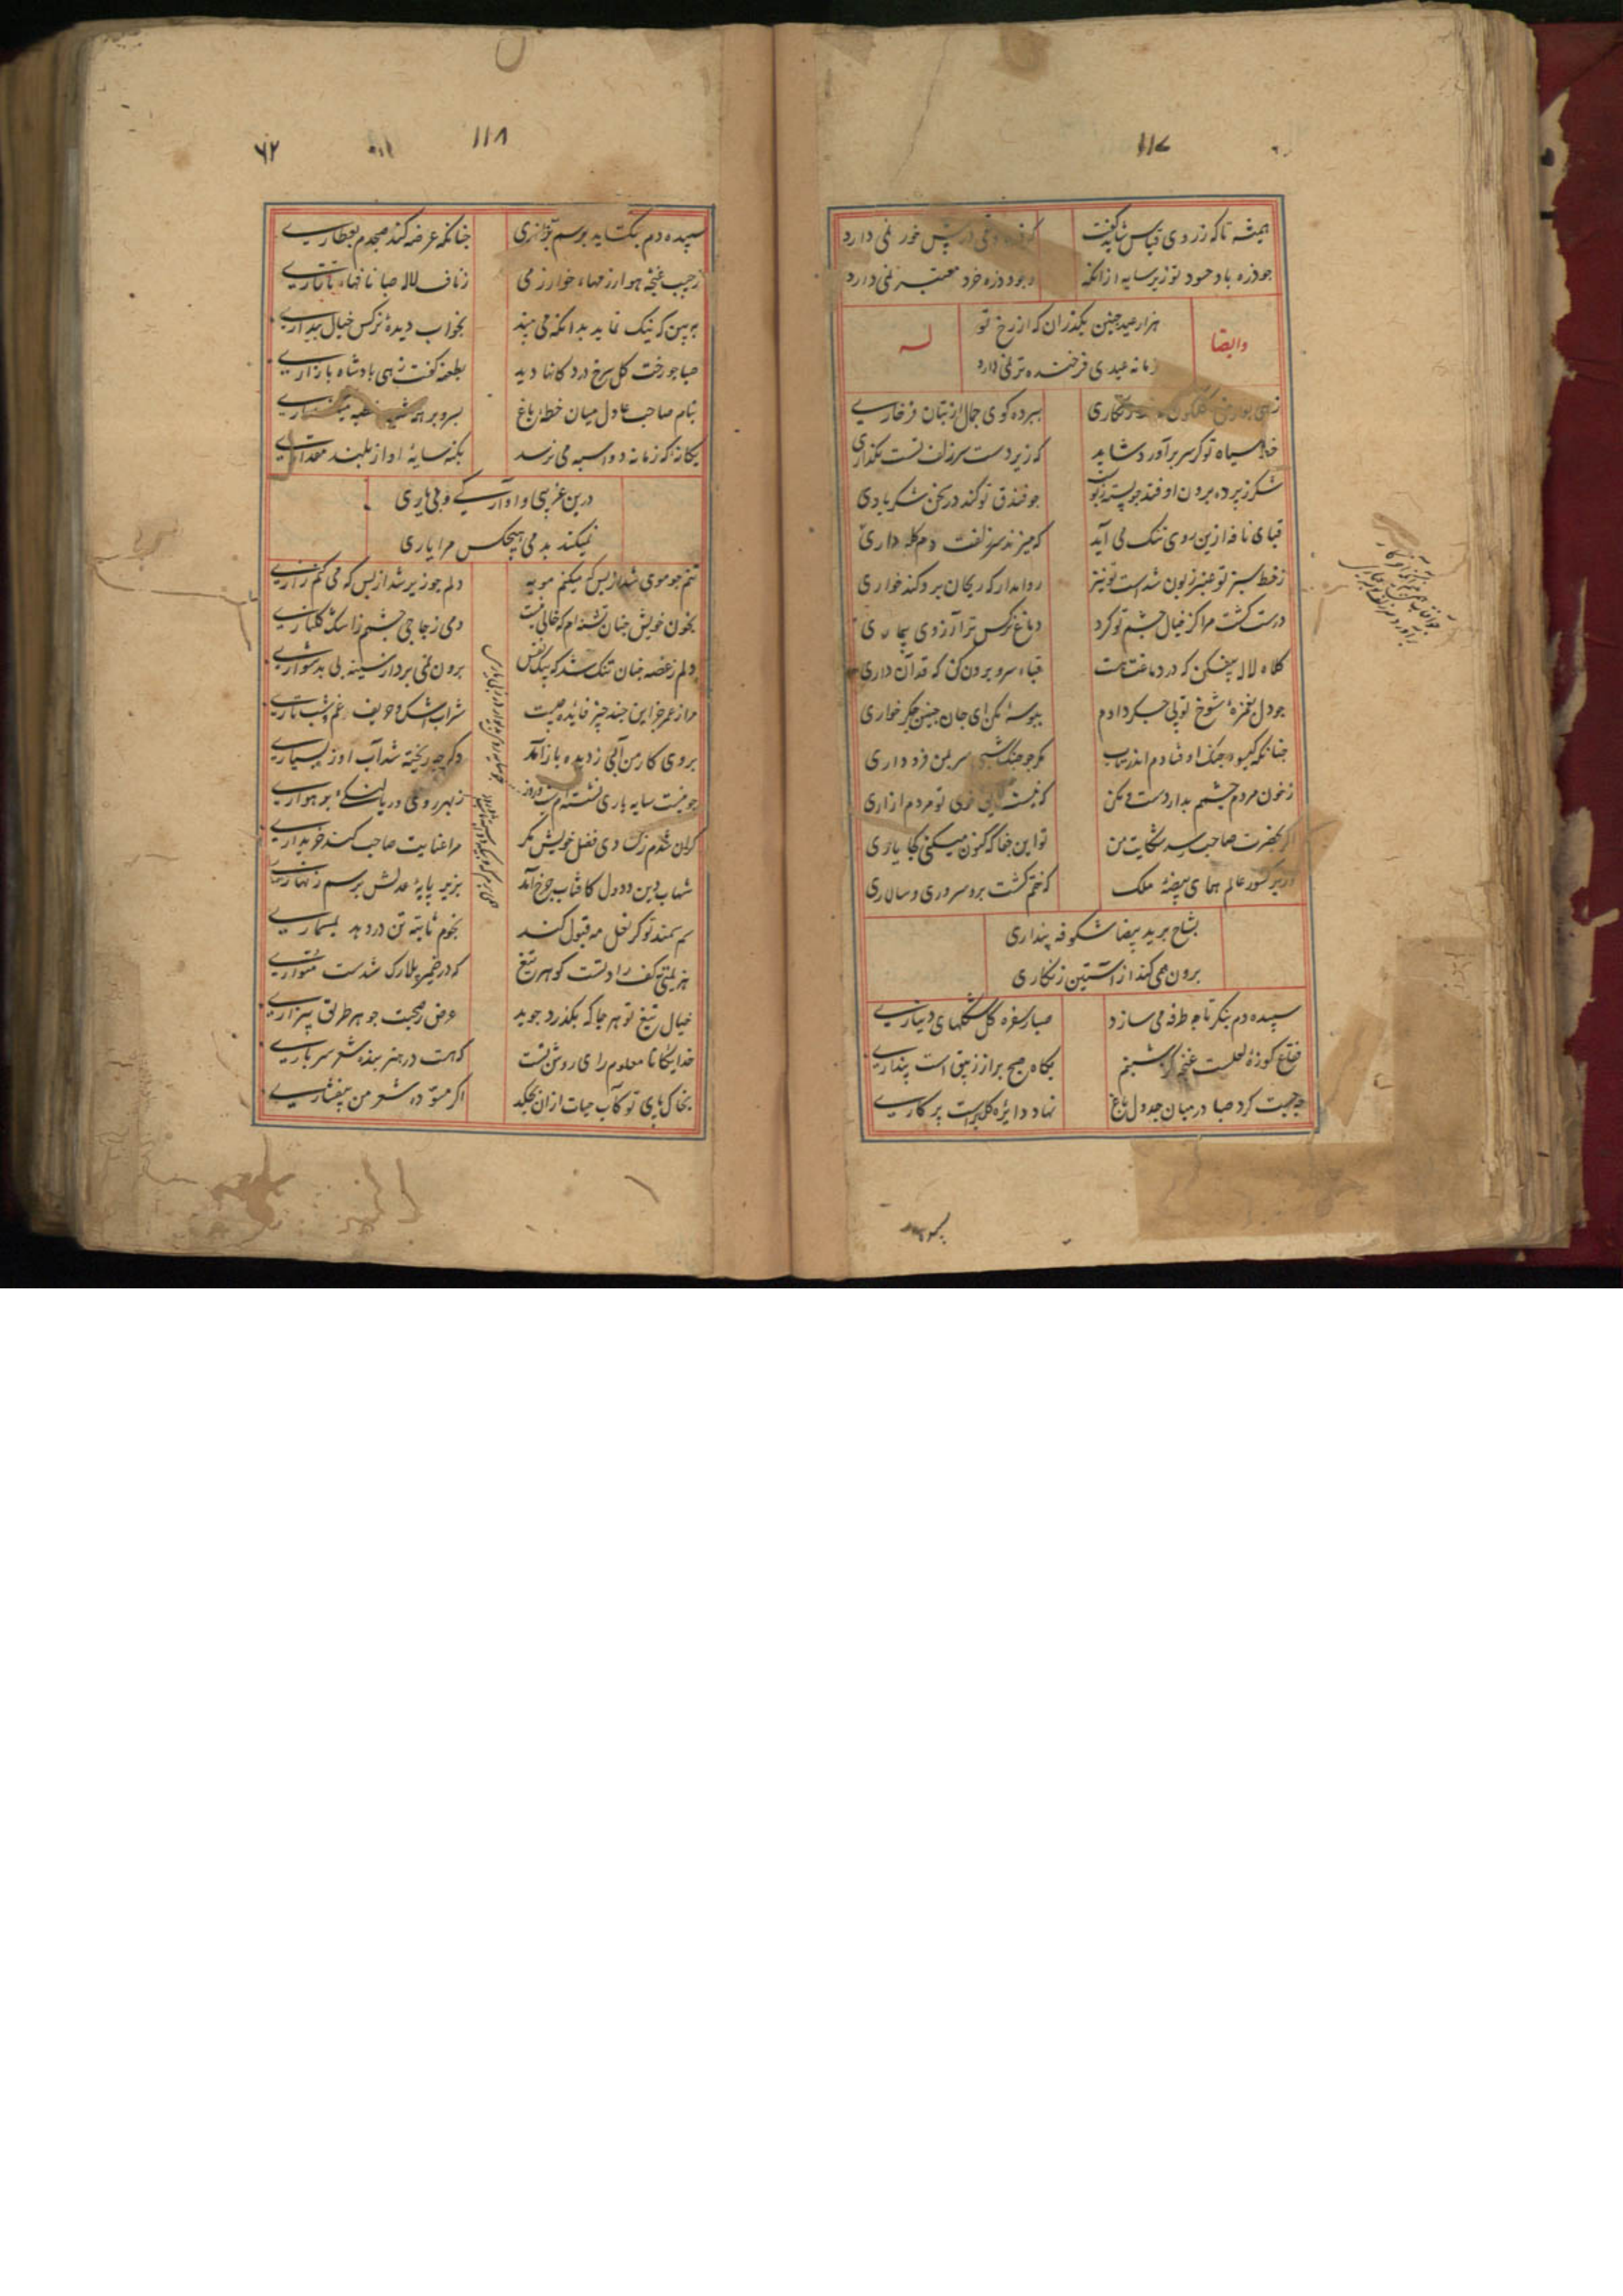 ۱۱۷
همیشه تا که ز روی قیاس شاید گفت
که ذره وقتی در پیش خور نمی دارد
جو ذره باد حسود تو زیر سایه از انکه
وجود ذره خرد معتبر نمی دارد
وایضا
له
هزار عید جنین بگذران که از رخ تو
زمانه عیدی فرخنده تر نمی دارد
زهی
ببرده کوی جمال از بتان فرخاری
سیاه تو کر سر برآورد شاید
که زیر دست سر زلف تست بکذاری
شکر ز پرده برون اوفتد جو پسته تو
جو فندق تو کند در سخن شکر باری
قبای نافه ازین روی تنک می آید
که میزند سر زلفت دم کله داری
ز خط سبز تو عنبر زبون شدست تو نیز
روا مدار که ریحان برو کند خواری
درست کشت مرا کز خیال جشم تو کرد
دماغ نرکس ترا آرزوی بیماری
کلاه لاله بیفکن که در دماغت هست
قباء سرو برون کن که قد آن داری
جو دل بغمزه شوخ تو بی جکر دادم
ببوسه مکن ای جان جنین جکر خواری
جنانکه کیسوء جنک اوفتادم اندر تاب
مکر جو جنک شبی سر بمن فرود اری
ز خون مردم جشمم بدار دست و مکن
که نیست خوی تو مردم ازاری
حضرت صاحب رسد شکایت من
تو این جفا که کنون میکنی کجا یاری
وزیر کشور عالم همای بیضه ملک
که ختم کشت برو سروری و سالاری
بشاخ بر ید بیضا شکوفه پنداری
برون همی کند از آستین زنکاری
سپیده دم بنکر تا جه طرفه می سازد
صبا ز سفره کل شکلهای دیناری
فقاع کوزه لعلست غنچه کز شبنم
بکاه صبح بر از زیبق است پنداری
صبا در میان جدول باغ
نهاد دایره کل براست پرکاری
۱۱۸
۶۲
سپیده دم بکشاید برسم بزازی
جنانکه عرضه کند صبحدم بعطاری
ز جیب غنچه هوا رزمهاء خوارزمی
ز ناف لاله صبا نافهاء تاتاری
ببین که نیک نماید بدانکه می بیند
بخواب دیده نرکس خیال بیداری
صبا جو رخت کل سرخ در دکانها دید
بطعنه کفت زهی بادشاه بازاری
بنام صاحب عادل میان خطه باغ
بسرو بر همه شب خطبه میکند ساری
یکانه که زمانه دو اسبه می نرسد
بکنه سایه او از بلند مقداری
درین غریبی و اوارکی و بی یاری
نمیکند بدمی هیچکس مرا یاری
تنم جو موی شد از بس که میکنم مویه
دلم جو زیر شد از بس که می کنم زاری
بخون خویش جنان تشنه ام که خالی نیست
دمی زجاجی جشمم ز اشک کلناری
دلم ز غصه جنان تنک شد که پیک نفس
برون نمی برد از سینه بی بدشواری
مرا ز عمر جز این جند جیز فایده جیست
شراب اشک و حریف غم و شب تاری
بروی کار من آبی ز دیده باز آمد
دکر جو ریخته شد آب او ز بسیاری
جو نیست سایه باری نشسته ام
ز بهر روی
کران شدم ز دی فضل خویش مکر
مرا عنایت صاحب کند خریداری
شهاب دین و دول کافتاب جرخ آمد
بزیر پایه عدلش برسم زنهاری
سم سمند تو کر نعل مه قبول کند
نجوم ثابته تن در دهد بمسماری
هزیمتی کف راد تست کوهر تیغ
که در ضمیر بلارک شدست متواری
خیال تیغ تو هر جا که بکذرد جوید
عرض ز صحبت جوهر طریق بیزاری
خدایکانا معلوم رای روشن تست
که هست در هنر بنده شعر سرباری
بخاک پای تو کآب حیات ازان بچکد
اکر مسوده شعر من بیفشاری